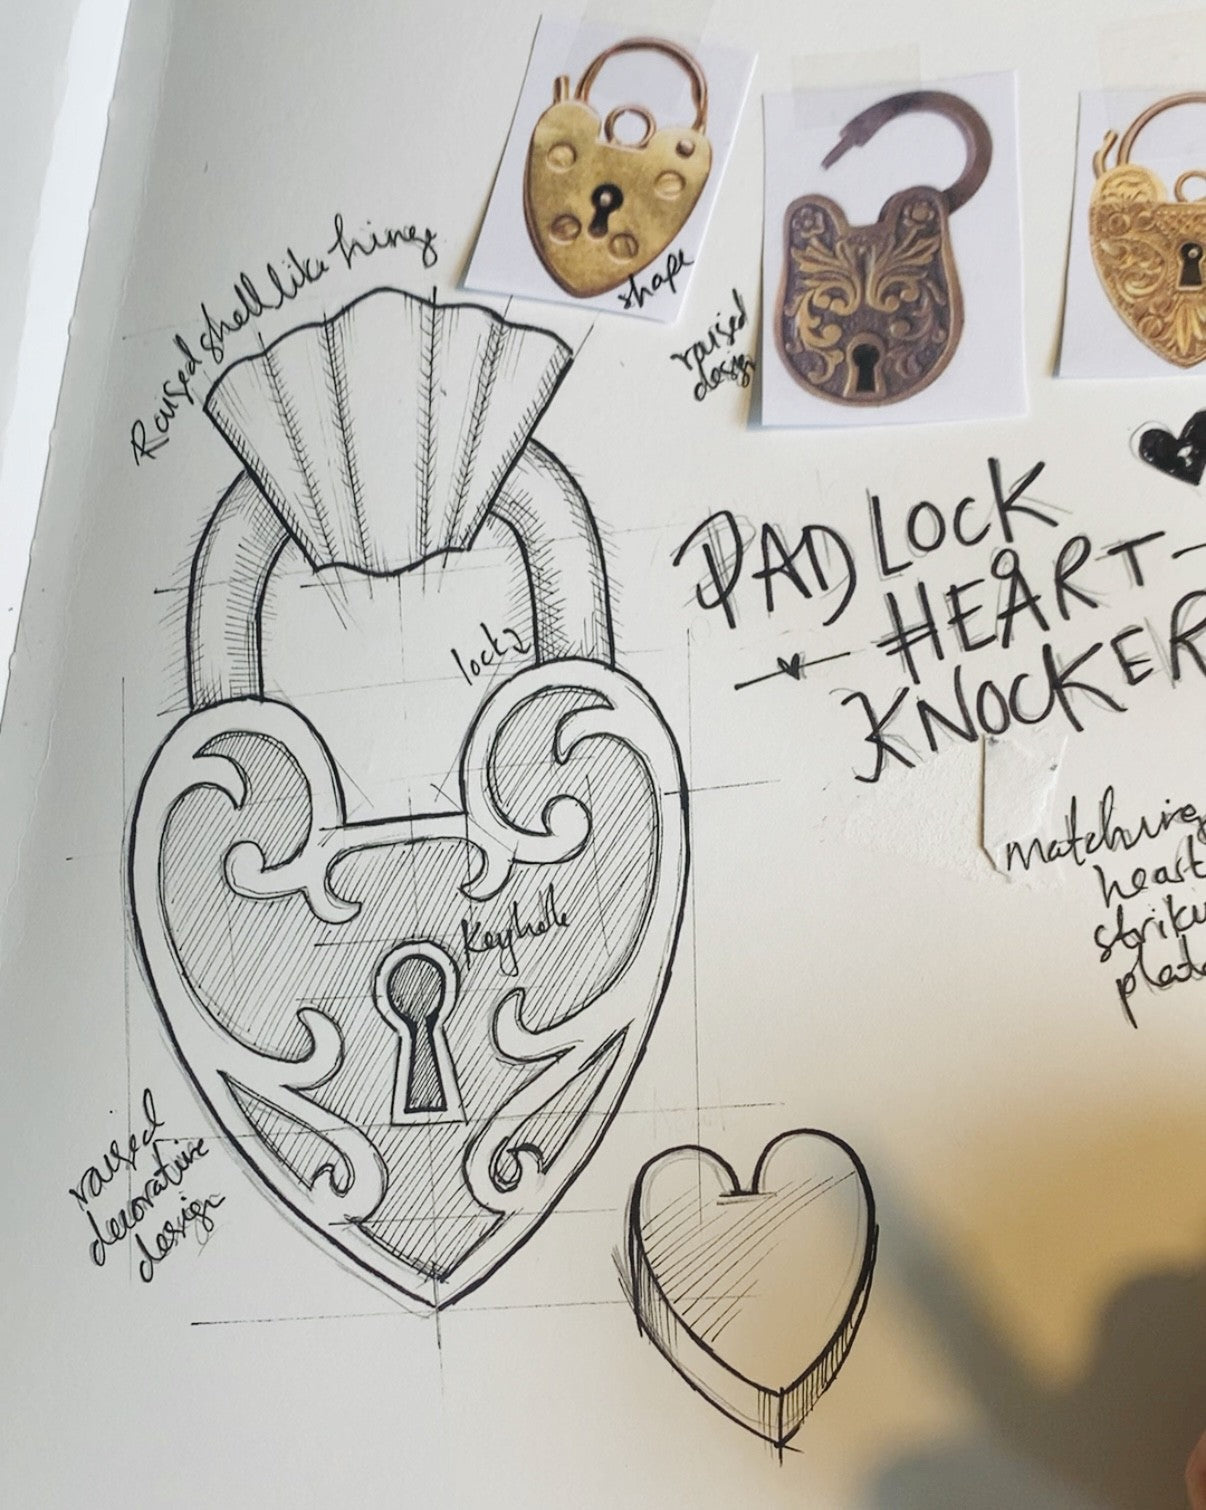 Raised shell like hinge
shape
raised
design
PADLOCK
HEART
KNOCKER
lock
Keyhole
matching
heart
plate
raised
decorative
design